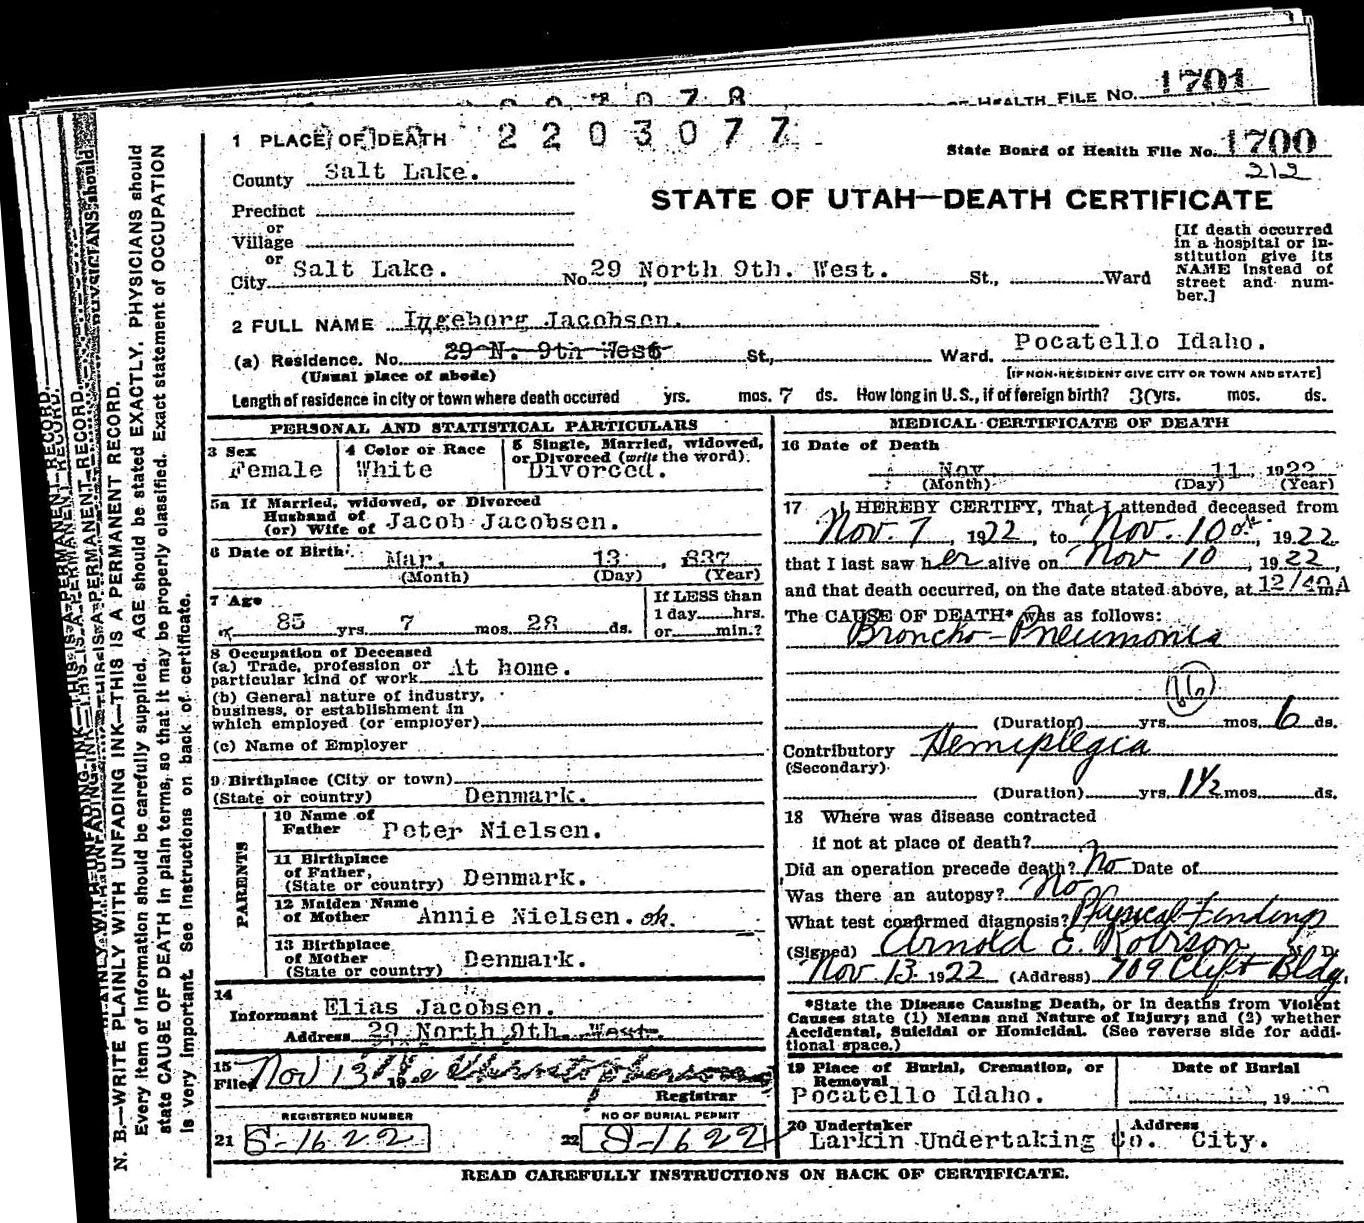 1701
HEALTH FILE No.
1 PLACE OF DEATH 2203077
State Board of Health File No. 1700
212
County Salt Lake.
STATE OF UTAH—DEATH CERTIFICATE
Precinct
or
Village
or
City Salt Lake. No. 29 North 9th. West. St., Ward
[If death occurred
in a hospital or in-
stitution give its
NAME instead of
street and num-
ber.]
2 FULL NAME Ingeborg Jacobsen.
(a) Residence. No. 29 N. 9th West St., Ward. Pocatello Idaho.
(Usual place of abode) [IF NON-RESIDENT GIVE CITY OR TOWN AND STATE]
Length of residence in city or town where death occured yrs. mos. 7 ds. How long in U.S., if of foreign birth? 30 yrs. mos. ds.
PERSONAL AND STATISTICAL PARTICULARS
3 Sex
Female
4 Color or Race
White
5 Single, Married, widowed,
or Divorced (write the word).
Divorced.
5a If Married, widowed, or Divorced
Husband of
(or) Wife of Jacob Jacobsen.
6 Date of Birth Mar. 13, 837
(Month) (Day) (Year)
7 Age
85 yrs. 7 mos. 28 ds.
If LESS than
1 day hrs.
or min.?
8 Occupation of Deceased
(a) Trade, profession or
particular kind of work At home.
(b) General nature of industry,
business, or establishment in
which employed (or employer)
(c) Name of Employer
9 Birthplace (City or town)
(State or country) Denmark.
PARENTS
10 Name of
Father Peter Nielsen.
11 Birthplace
of Father,
(State or country) Denmark.
12 Maiden Name
of Mother Annie Nielsen. ok.
13 Birthplace
of Mother
(State or country) Denmark.
14
Informant Elias Jacobsen.
Address 29 North 9th. West.
15
Filed Nov 13 19
Registrar
REGISTERED NUMBER
21 S-1622
NO OF BURIAL PERMIT
22 S-1622
MEDICAL CERTIFICATE OF DEATH
16 Date of Death
Nov 11 1922
(Month) (Day) (Year)
17 I HEREBY CERTIFY, That I attended deceased from
Nov. 7, 1922, to Nov. 10, 1922
that I last saw her alive on Nov 10, 1922,
and that death occurred, on the date stated above, at 12/40 A m
The CAUSE OF DEATH* was as follows:
Broncho-Pneumonia
(Duration) yrs. mos. 6 ds.
Contributory Hemiplegia
(Secondary)
(Duration) yrs. 1 1/2 mos. ds.
18 Where was disease contracted
if not at place of death?
Did an operation precede death? No Date of
Was there an autopsy? No
What test confirmed diagnosis? Physical Findings
(Signed) Arnold E. Robison M. D.
Nov 13 1922 (Address) 709 Clift Bldg.
*State the Disease Causing Death, or in deaths from Violent
Causes state (1) Means and Nature of Injury; and (2) whether
Accidental, Suicidal or Homicidal. (See reverse side for addi-
tional space.)
19 Place of Burial, Cremation, or
Removal
Pocatello Idaho.
Date of Burial
, 19
20 Undertaker
Larkin Undertaking Co.
Address
City.
READ CAREFULLY INSTRUCTIONS ON BACK OF CERTIFICATE.
N. B.—WRITE PLAINLY WITH UNFADING INK—THIS IS A PERMANENT RECORD.
Every item of information should be carefully supplied. AGE should be stated EXACTLY. PHYSICIANS should
state CAUSE OF DEATH in plain terms, so that it may be properly classified. Exact statement of OCCUPATION
is very important. See instructions on back of certificate.